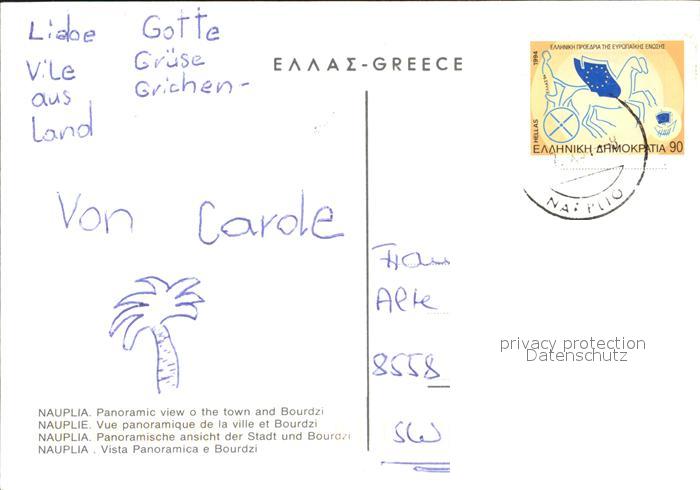 Liebe Gotte
Vile Grüse
aus Grichen-
Land
Von Carole
ΕΛΛΑΣ-GREECE
ΕΛΛΗΝΙΚΗ ΠΡΟΕΔΡΙΑ ΤΗΣ ΕΥΡΩΠΑΪΚΗΣ ΕΝΩΣΗΣ
1994
HELLAS
ΕΛΛΗΝΙΚΗ ΔΗΜΟΚΡΑΤΙΑ 90
Alte
8558
SW
privacy protection
Datenschutz
NAUPLIA. Panoramic view o the town and Bourdzi
NAUPLIE. Vue panoramique de la ville et Bourdzi
NAUPLIA. Panoramische ansicht der Stadt und Bourdzi
NAUPLIA . Vista Panoramica e Bourdzi